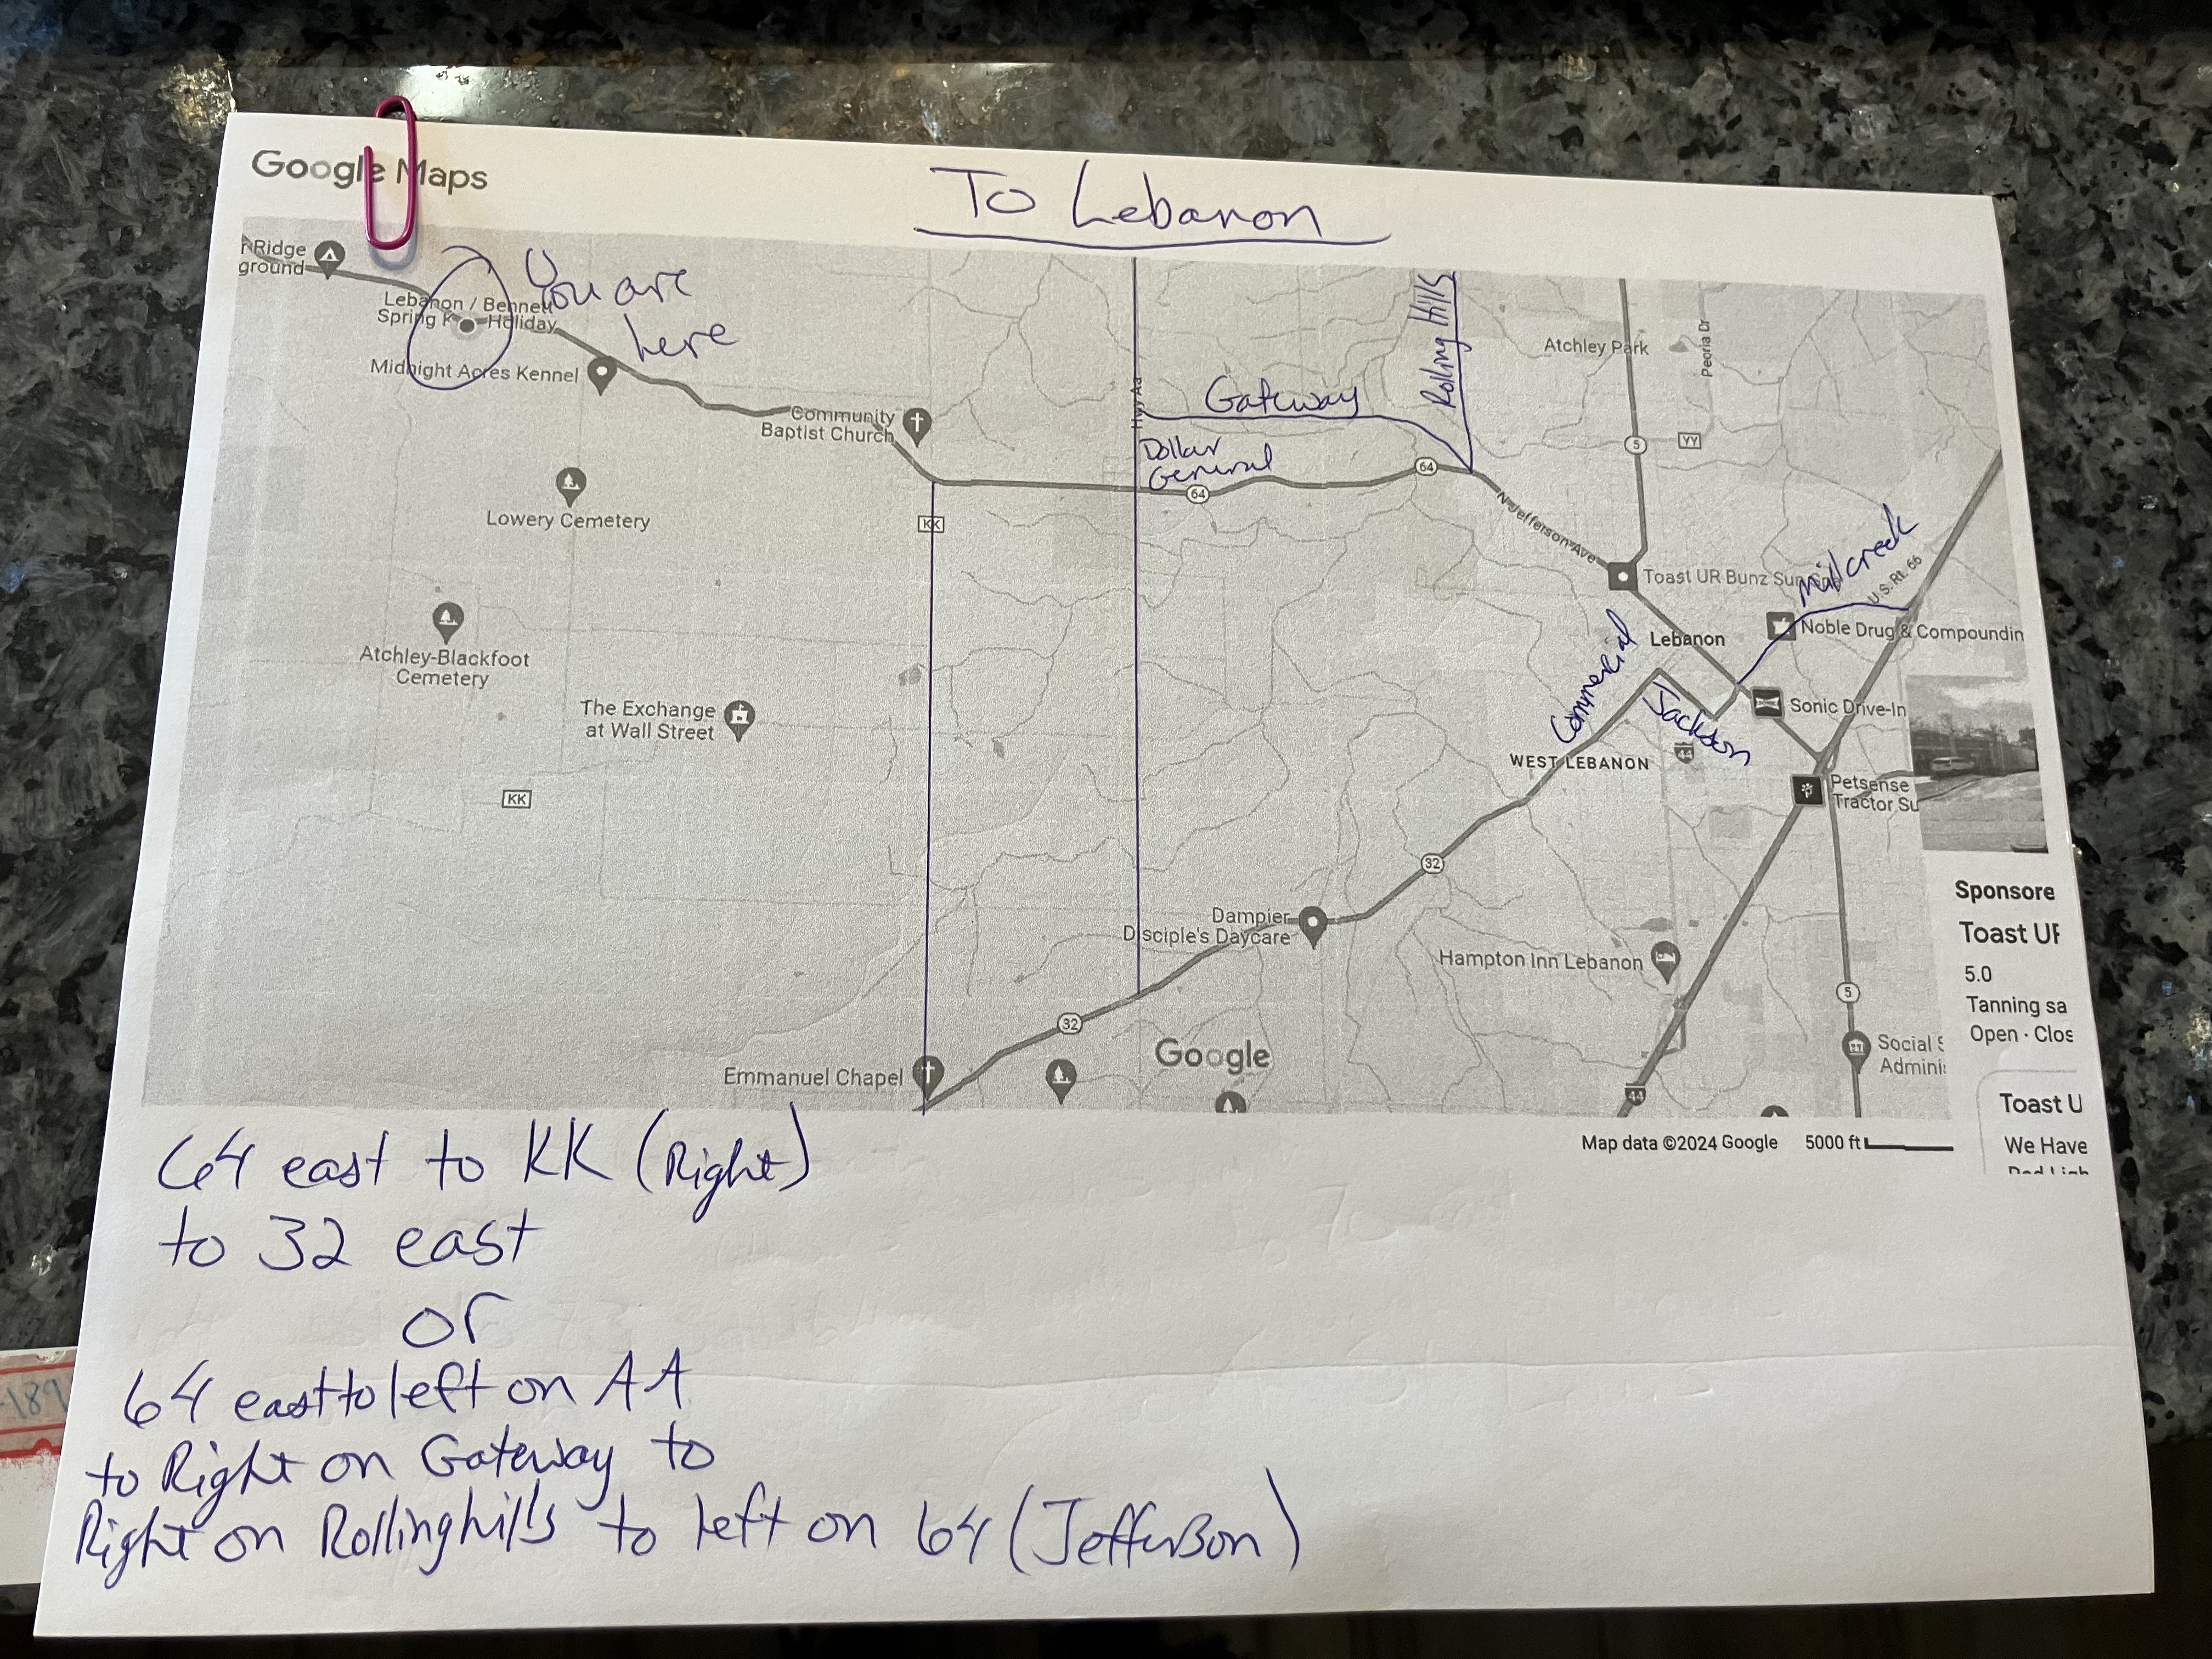 Google Maps
To Lebanon
Ridge
ground
Lebanon / Bennett
Spring K Holiday
You are
here
Midnight Acres Kennel
Community
Baptist Church
Hwy Aa
Gateway
Rolling Hills
Dollar
General
64
64
Atchley Park
Peoria Dr
5
YY
N Jefferson Ave
KK
Lowery Cemetery
Toast UR Bunz Sun
Mill creek
U.S. Rt. 66
Noble Drug & Compoundin
Lebanon
Commercial
Jackson
Sonic Drive-In
44
WEST LEBANON
Petsense
Tractor Su
Atchley-Blackfoot
Cemetery
The Exchange
at Wall Street
KK
32
Dampier
Disciple's Daycare
Hampton Inn Lebanon
5
32
Google
Emmanuel Chapel
44
Social S
Adminis
Sponsore
Toast UR
5.0
Tanning sa
Open · Clos
Toast U
We Have
Map data ©2024 Google 5000 ft
64 east to KK (Right)
to 32 east
or
64 east to left on AA
to Right on Gateway to
Right on Rollinghills to left on 64 (Jefferson)